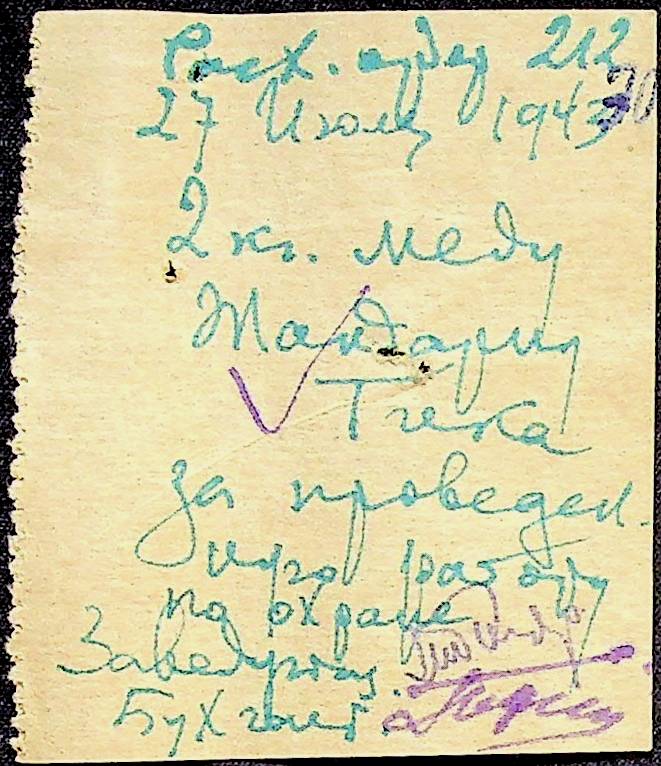 Расх. ордер 212
27 Июля 1943
2 кг. меду
Жандарму
за проведен-
ную работу
по охране
Заведующ.
Бухгалт.